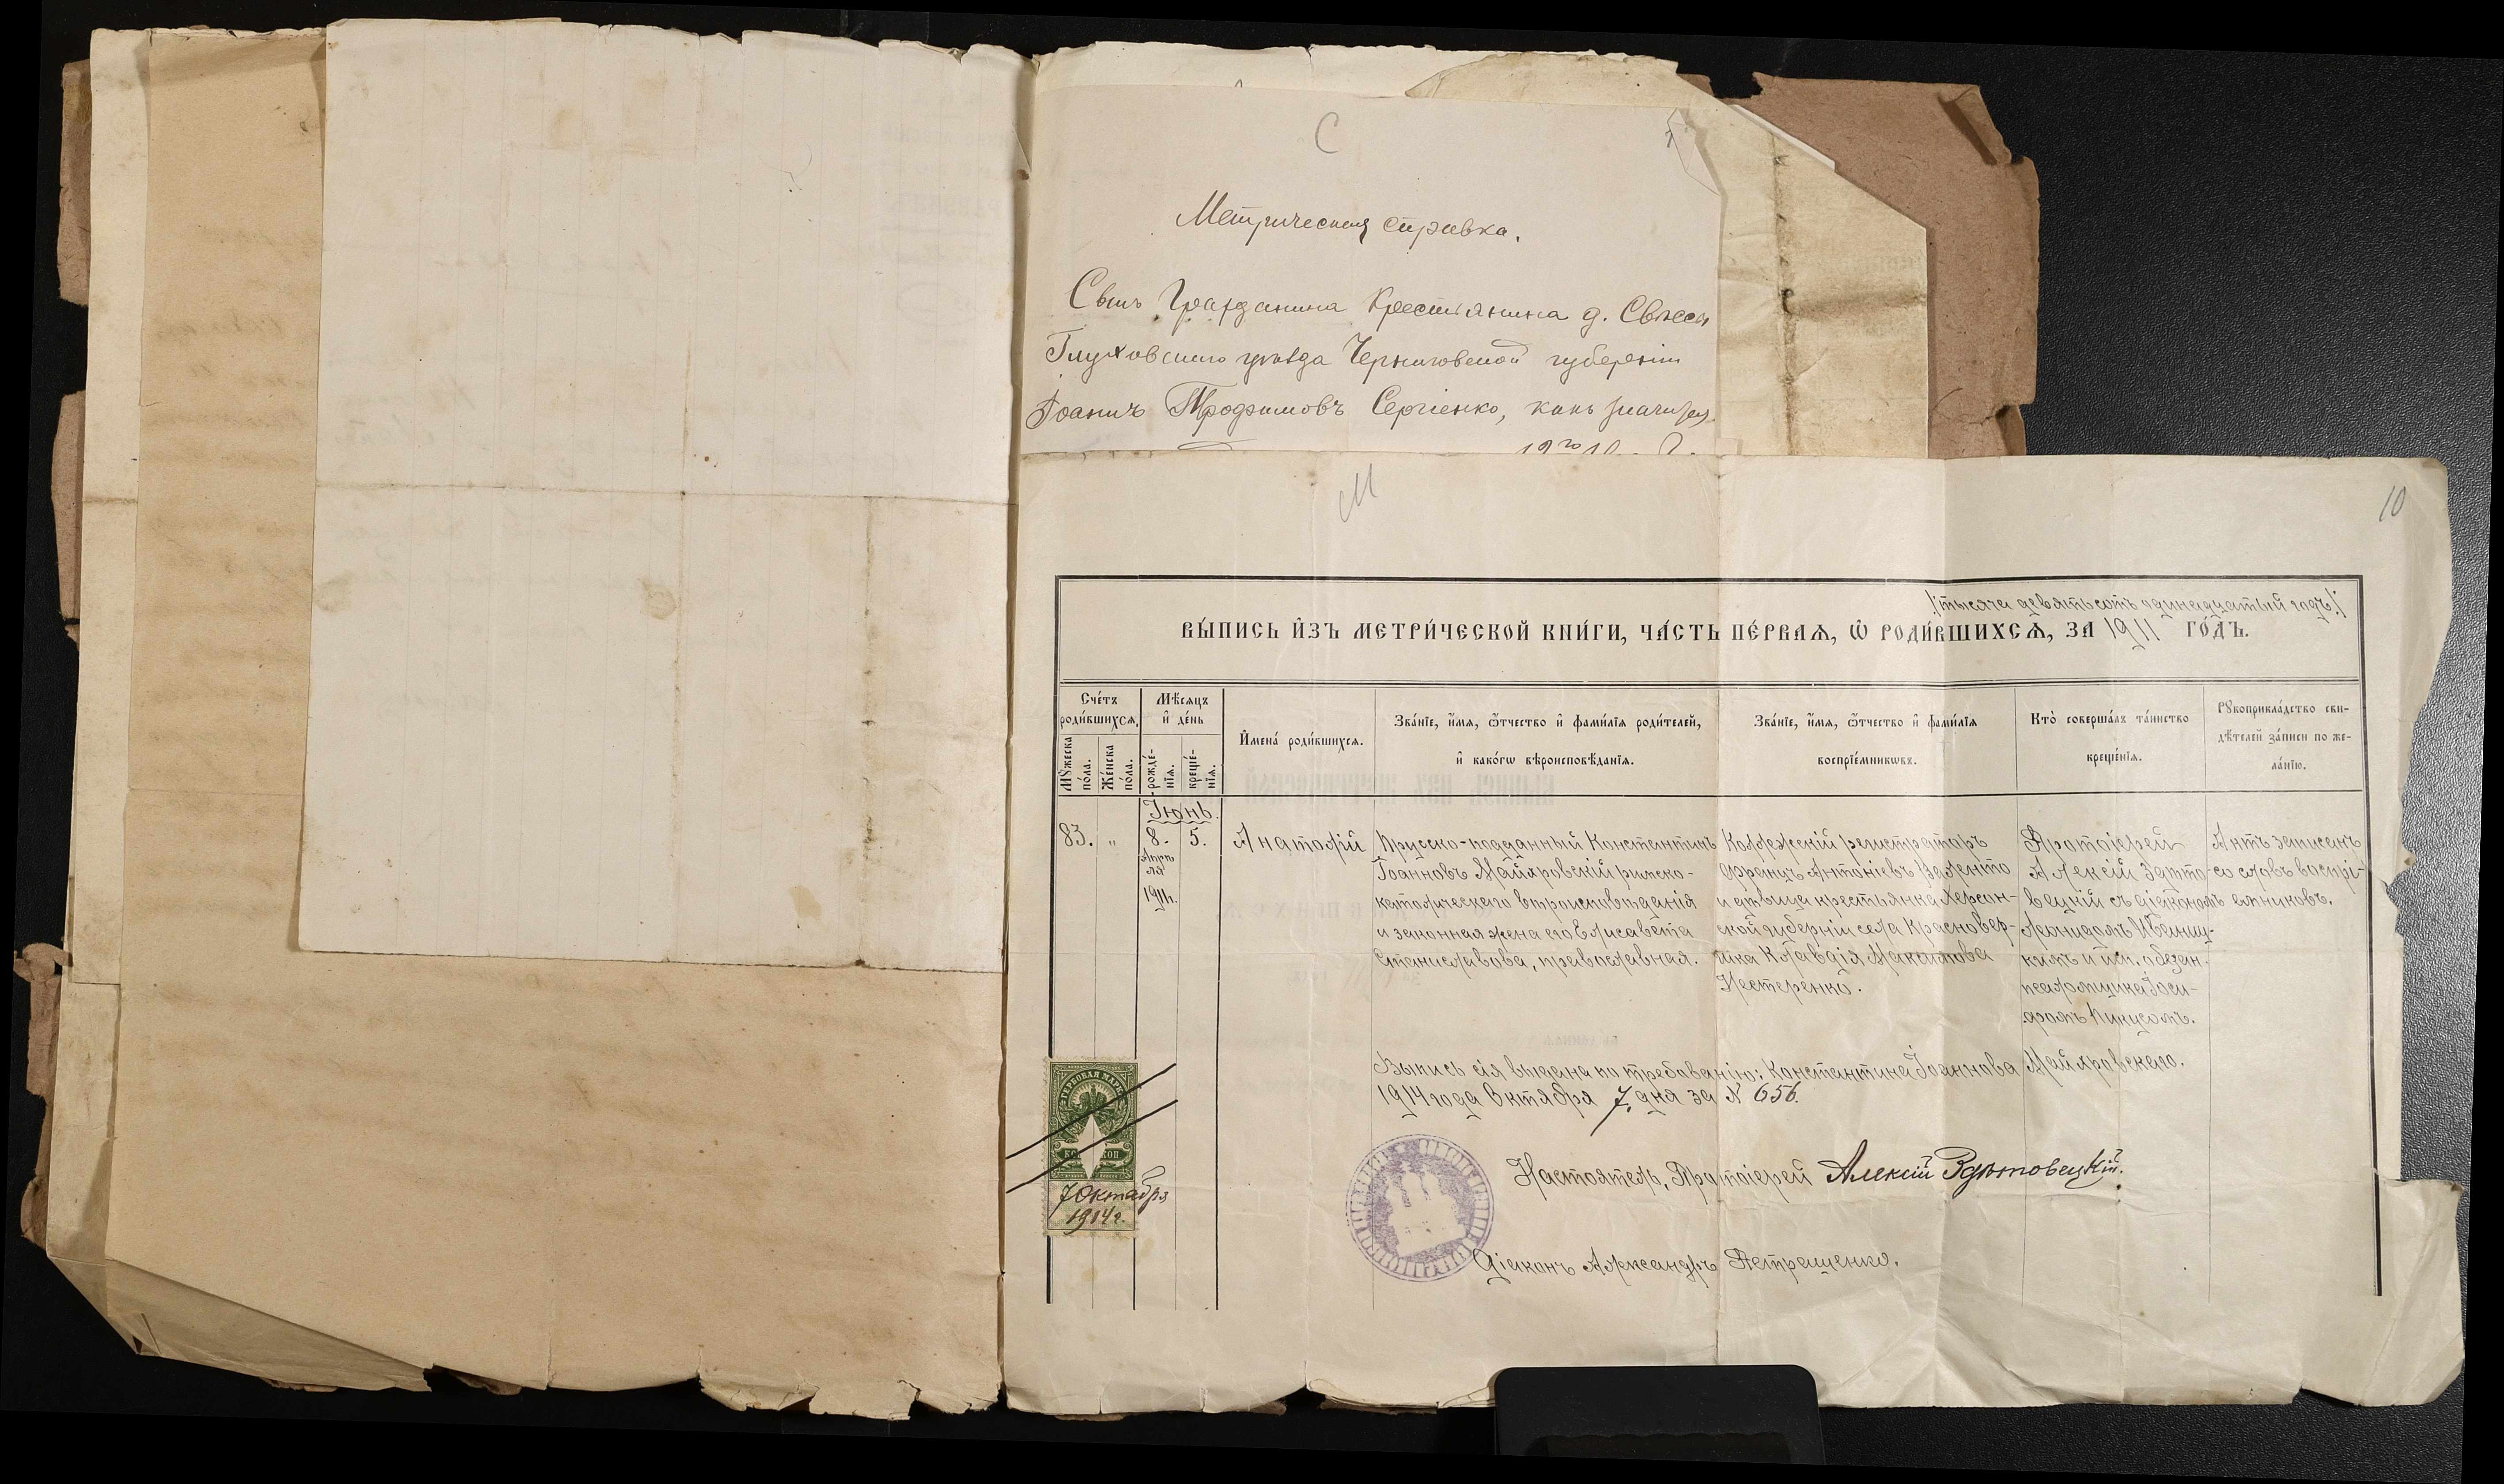 С
Метрическая справка.
Сынъ Гражданина Крестьянина д. Свѣсы
Глуховскаго уѣзда Черниговской губерніи
Іоаннъ Трофимовъ Сергіенко, какъ значится
М
10
/:тысяча девятьсотъ одинадцатый годъ:/
ВЫ́ПИСЬ И҆́ЗЪ МЕТРИ́ЧЕСКОЙ КНИ́ГИ, ЧА́СТЬ ПЕ́РВАѦ, Ѽ РОДИ́ВШИХСѦ, ЗА 1911 ГО́ДЪ.
Сче́тъ роди́вшихсѧ,
Мꙋ́жеска по́ла.
Же́нска по́ла.
Мѣ́сяцъ и҆ де́нь
рожде́-нїѧ.
креще́-нїѧ.
И҆мена́ роди́вшихсѧ.
Зва́нїе, и҆́мѧ, ѻ҆́тчество и҆ фами́лїѧ роди́телей,
и҆ како́гѡ вѣроисповѣ́данїѧ.
Зва́нїе, и҆́мѧ, ѻ҆́тчество и҆ фами́лїѧ
воспрїе́мникѡвъ.
Кто̀ соверша́лъ та́инство
креще́нїѧ.
Рꙋкоприкла́дство сви-
дѣ́телей за́писи по же-
ла́нїю.
83.
"
Іюнь.
8.
Апрѣ
ля
1911г.
5.
Анатолій
Прусско-подданный Константинъ
Іоанновъ Майяровскій римско-
католическаго вѣроисповѣданія
и законная жена его Елисавета
Станиславова, православная.
Коллежскій регистраторъ
Францъ Антоніевъ Валенто
и дѣвица крестьянка Херсон-
ской губерніи села Красновер-
шка Клавдія Максимова
Нестеренко.
Протоіерей
Алексій Здѣто-
вецкій съ діакономъ
Леонидомъ
кимъ и исп. обязан.
псаломщика
Актъ записанъ
со словъ воспрі-
емниковъ.
Выпись сія выдана по требованію: Константина Іоаннова Майяровскаго.
1914 года Октября 7. дня за № 656.
ГЕРБОВАЯ МАРКА
КОП
7 Октября
1914 г.
Настоятель, Протоіерей Алексій Здѣтовецкій.
Діаконъ Александръ Петрашенко.